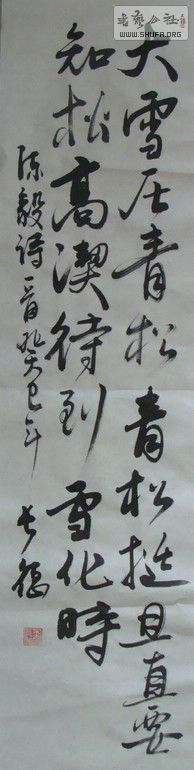 大雪压青松青松挺且直要
知松高洁待到雪化时
陈毅诗一首癸巳年
书艺公社
WWW.SHUFA.ORG